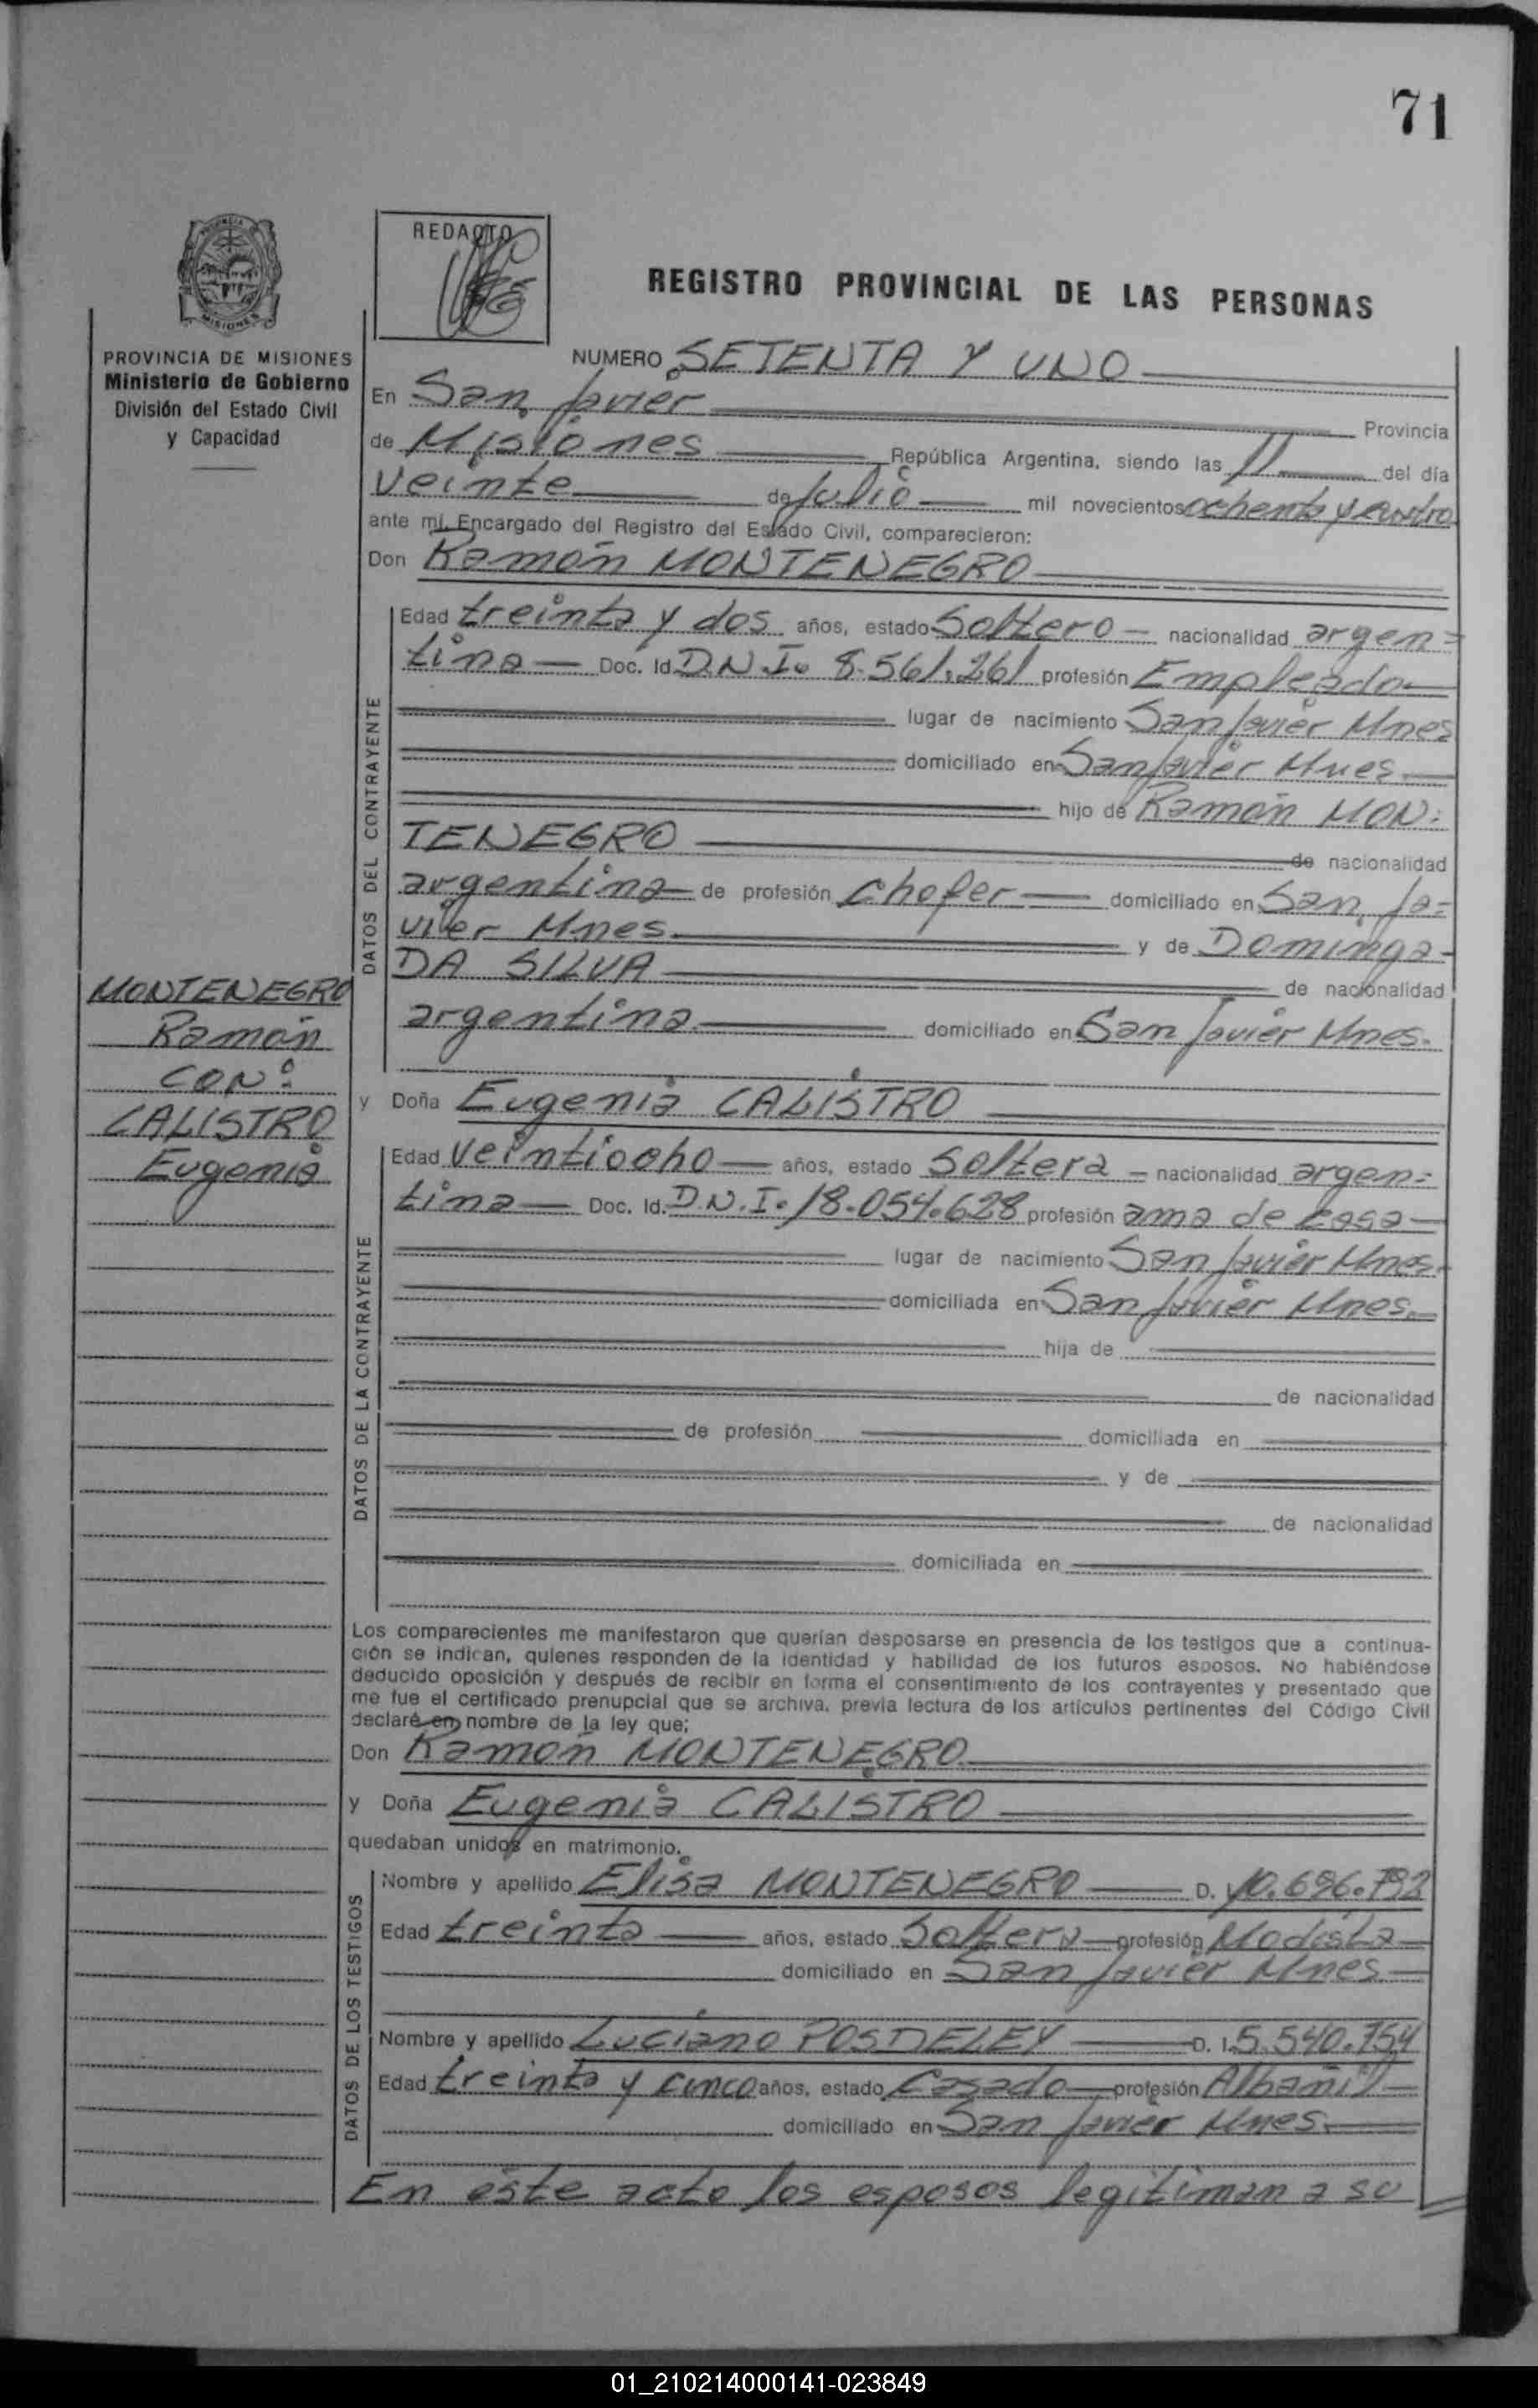 71
REDACTO
REGISTRO PROVINCIAL DE LAS PERSONAS
PROVINCIA DE MISIONES
Ministerio de Gobierno
División del Estado Civil
y Capacidad
NUMERO SETENTA Y UNO
En San Javier Provincia
de Misiones República Argentina, siendo las 11 del día
veinte de Julio mil novecientos ochenta y cuatro
ante mí, Encargado del Registro del Estado Civil, comparecieron:
Don Ramón MONTENEGRO
DATOS DEL CONTRAYENTE
Edad treinta y dos años, estado Soltero nacionalidad argen=
tina Doc. Id. D.N.I. 8.561.261 profesión Empleado
lugar de nacimiento San Javier Mnes
domiciliado en San Javier Mnes
hijo de Ramón MON=
TENEGRO de nacionalidad
argentina de profesión chofer domiciliado en San Ja=
vier Mnes. y de Dominga
DA SILVA de nacionalidad
argentina domiciliado en San Javier Mnes.
MONTENEGRO
Ramón
CON:
CALISTRO
Eugenia
y Doña Eugenia CALISTRO
DATOS DE LA CONTRAYENTE
Edad veintiocho años, estado Soltera nacionalidad argen=
tina Doc. Id. D.N.I. 18.054.628 profesión ama de casa
lugar de nacimiento San Javier Mnes.
domiciliada en San Javier Mnes.
hija de
de nacionalidad
de profesión domiciliada en
y de
de nacionalidad
domiciliada en
Los comparecientes me manifestaron que querían desposarse en presencia de los testigos que a continua-
ción se indican, quienes responden de la identidad y habilidad de los futuros esposos. No habiéndose
deducido oposición y después de recibir en forma el consentimiento de los contrayentes y presentado que
me fue el certificado prenupcial que se archiva, previa lectura de los artículos pertinentes del Código Civil
declaré en nombre de la ley que;
Don Ramón MONTENEGRO
y Doña Eugenia CALISTRO
quedaban unidos en matrimonio.
DATOS DE LOS TESTIGOS
Nombre y apellido Elisa MONTENEGRO D. 10.696.792
Edad treinta años, estado Soltera profesión Modista
domiciliado en San Javier Mnes
Nombre y apellido Luciano POSDELEY D. I. 5.540.754
Edad treinta y cinco años, estado Casado profesión Albañil
domiciliado en San Javier Mnes.
En éste acto los esposos legitiman a su
01_210214000141-023849